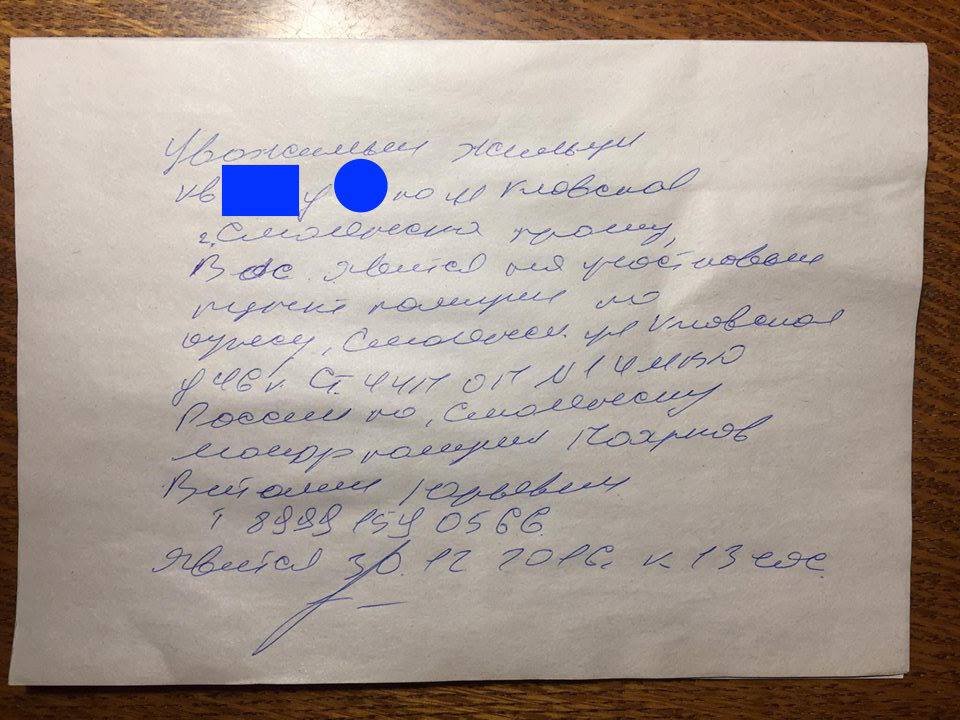 Уважаемые жильцы
кв д по ул Кловская
г. Смоленска прошу,
Вас явится на участковый
пункт полиции по
адресу, Смоленск ул Кловская
д 46 к Ст. УУП ОП N 1 УМВД
России по г. Смоленску
майор полиции
Виталий Юрьевич
т 8999 159 0566
Явится 30.12 2016г. к 13 час.